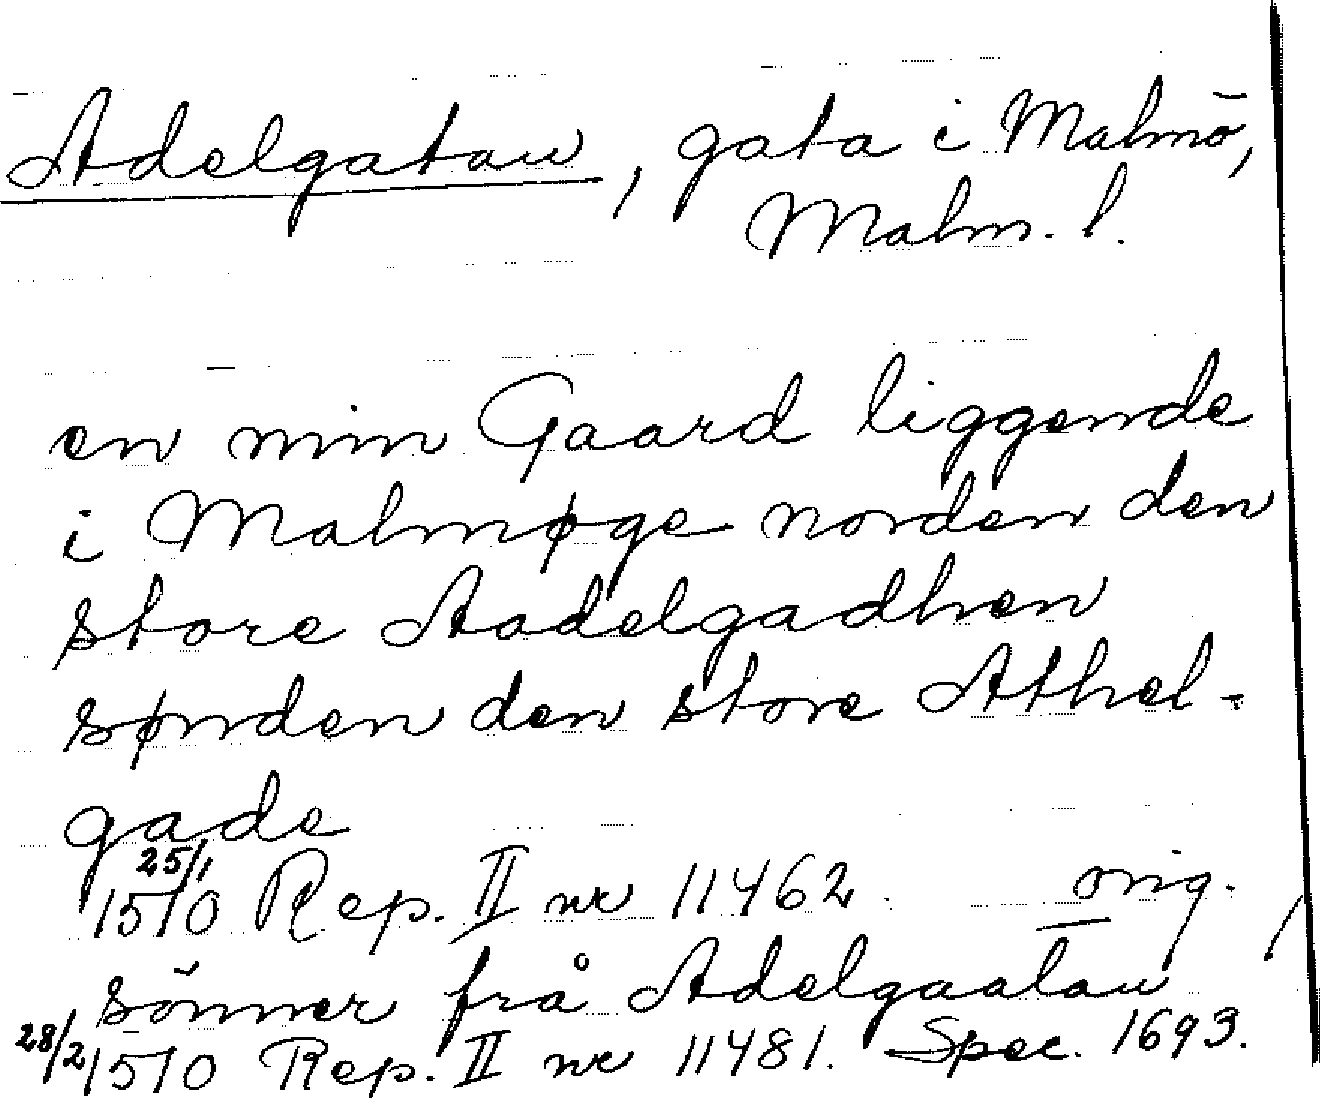 Adelgatan, gata i Malmö,
Malm. l.
en min Gaard liggende
i Malmøge norden den
store Aadelgadhen
sønden den store Athel-
gade
25/1
1510 Rep. II nr 11462. orig.
sönner från Adelgaatan
28/2 1510 Rep. II nr 11481. Spec. 1693.